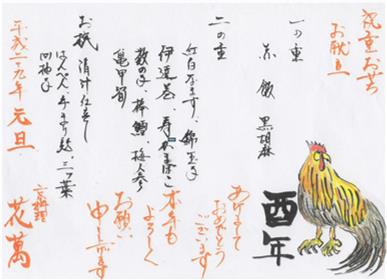 祝重お節
お献立
一の重
赤飯 黒胡麻
二の重
紅白なます、錦玉子
伊達巻、寿かまぼこ
数の子、棒鱈、梅人参
亀甲筍
お椀 清汁仕立て
はんぺん、手まり麩、三ツ葉
平成二十九年 元旦
酉年
あけまして
おめでとう
ございます
本年も
よろしく
お願い
申し上げます
花萬